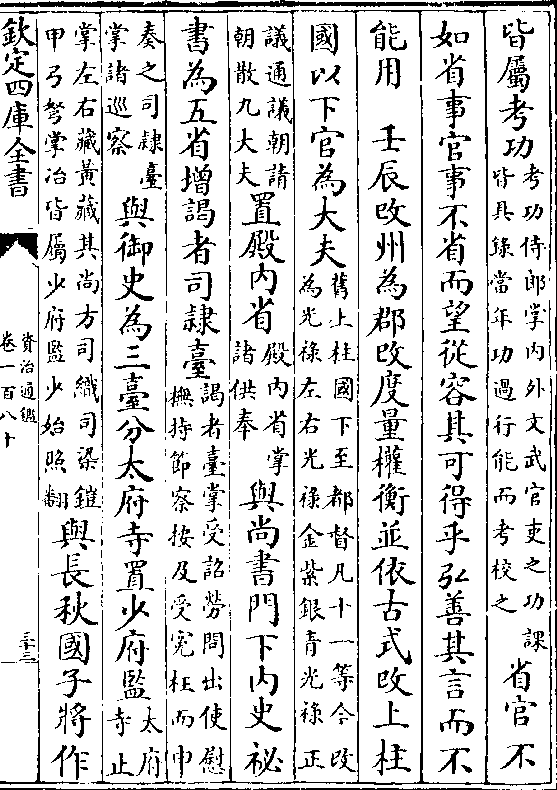 皆屬考功考功侍郎掌内外文武官吏之功課皆具錄當年功過行能而考校之省官不
如省事官事不省而望從容其可得乎弘善其言而不
能用　壬辰改州為郡改度量權衡並依古式改上柱
國以下官為大夫舊上柱國下至都督凡十一等今改為光祿左右光祿金紫銀青光祿正
議通議朝請朝散九大夫置殿内省殿内省掌諸供奉與尚書門下内史祕
書為五省增謁者司隸臺謁者臺掌受詔勞問出使慰撫持節察按及受寃枉而申
奏之司隸臺掌諸巡察與御史為三臺分太府寺置少府監太府寺止
掌左右藏黃藏其尚方司織司染鎧甲弓弩掌冶皆屬少府監少始照翻與長秋國子將作
欽定四庫全書
資治通鑑
卷一百八十
三十三